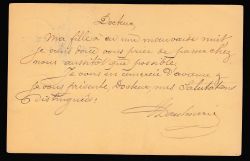 Docteur,
Ma fille a eu une mauvaise nuit
je viens donc vous prier de passer chez
nous aussitôt que possible,
Je vous en remercie d'avance &
je vous présente, Docteur, mes Salutations
distinguées.